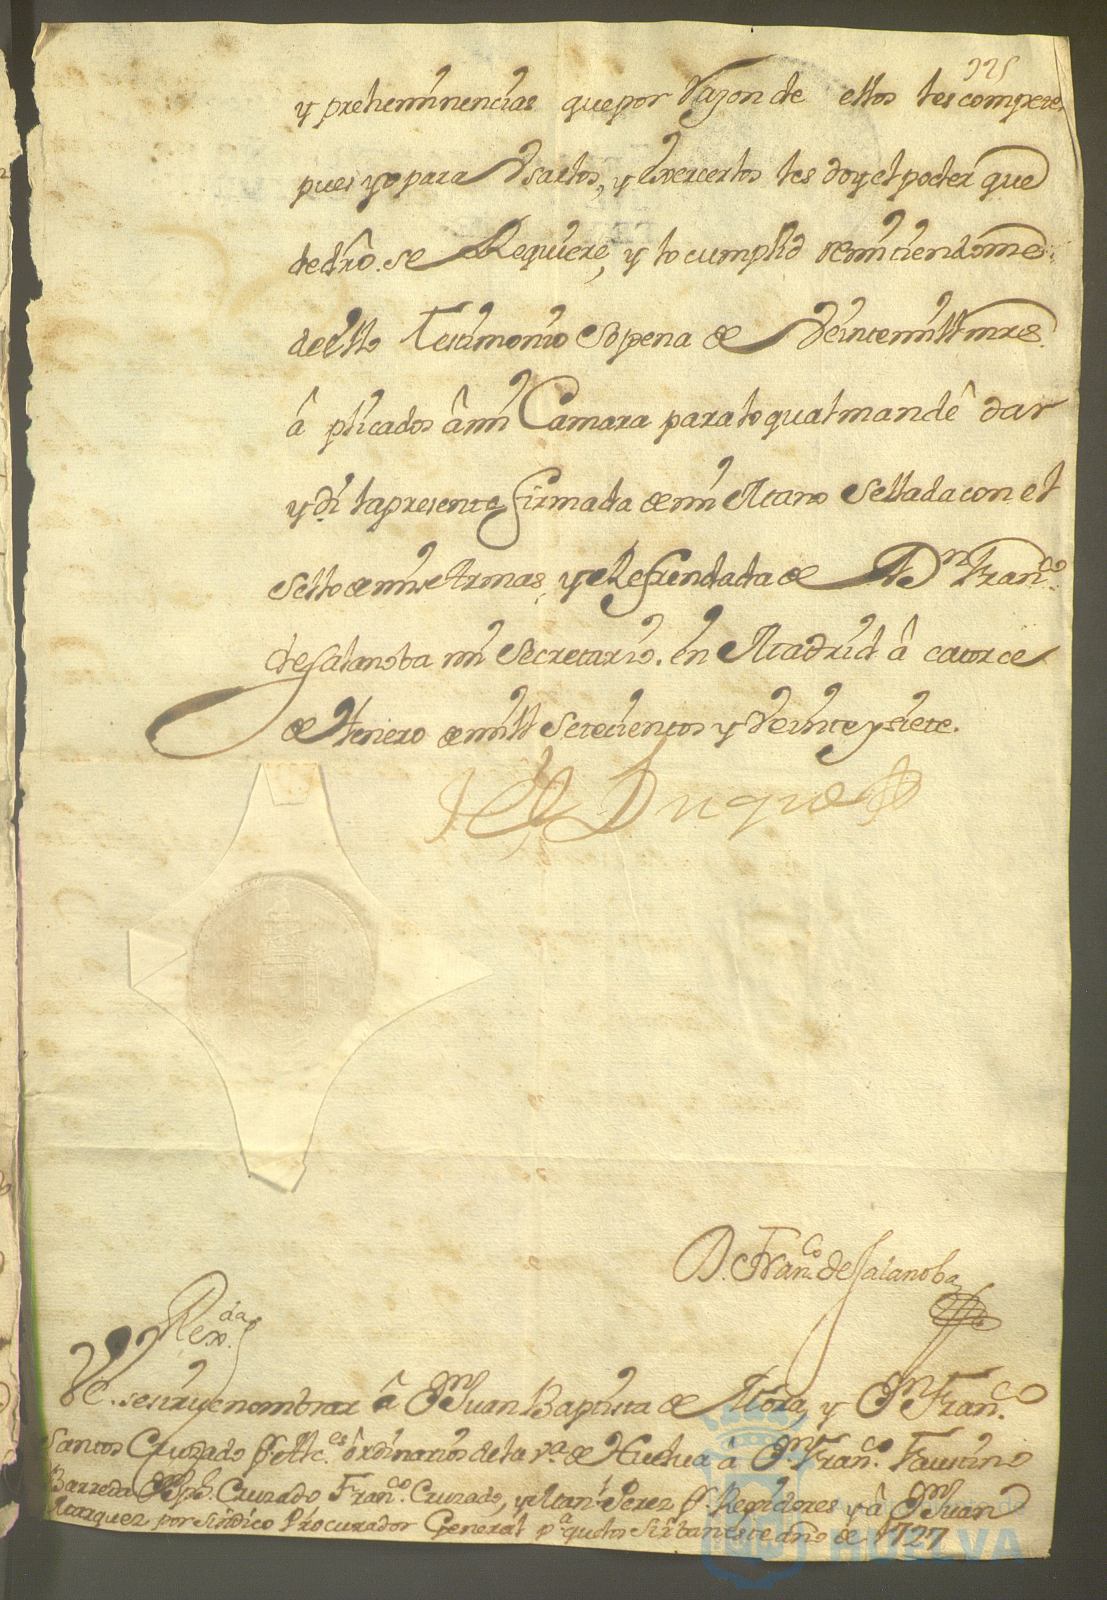 225
y preheminencias que por Razon de ellos les compete,
pues yo para Vsarlos, y Exercerlos les doy el poder que
de dro. se Requiere, y lo cumplid remitiendome
de ello Testimonio so pena de Veinte mill mrs.
â plicados â mi Camara para lo qual mandê dar
y di la presente firmada de mi Mano Sellada con el
Sello de mis Armas, y Refrendada de Dn. Franco.
de Salanoba mi Secretario. en Madrid â catorce
de Henero de mill Setecientos y Veinte y siete.
El Duque
D. Franco. de Salanoba
Rexda.
VE. se sirve nombrar â Dn. Juan Baptista de Mora, y Dn. Franco.
Santos Cruzado Pr. Alces. ôrdinarios de la Va. de Huelva â Dn. Franco. Faustino
Barreda Dn. Jph. Cruzado Franco. Cruzado, y Manl. Perez Pr. Regidores y â Dn. Juan
Marquez por Sindico Procurador General pa. que los sirban este año de 1727
HUELVA